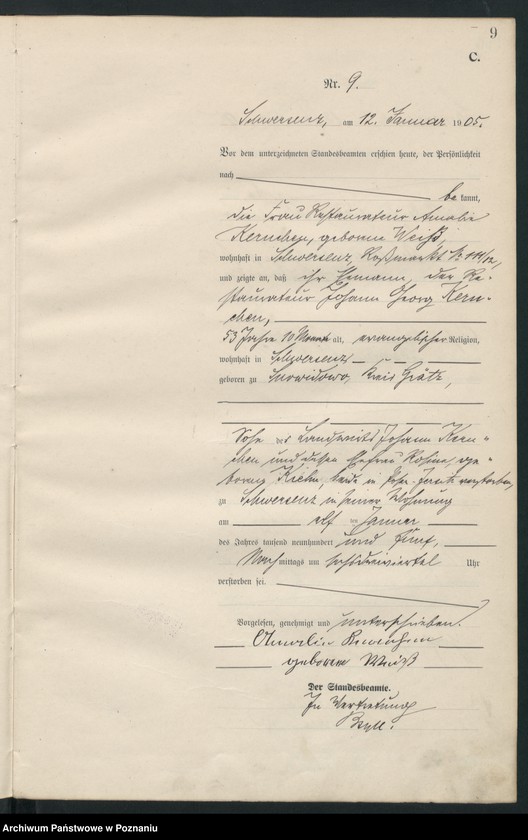 9
C.
Nr. 9.
Schwersenz, am 12. Januar 1905.
Vor dem unterzeichneten Standesbeamten erschien heute, der Persönlichkeit
nach
be kannt,
die Frau Restaurateur Amalie
Kernchen, geborene Weiß,
wohnhaft in Schwersenz, Roßmarkt № 111/12,
und zeigte an, daß ihr Ehemann, der Re-
staurateur Johann Georg Kern-
chen,
53 Jahre 10 Monat alt, evangelischer Religion,
wohnhaft in Schwersenz
geboren zu Snowidowo, Kreis Grätz,
Sohn des Landwirts Johann Kern-
chen und dessen Ehefrau Rosina, ge-
borene beide in verstorben,
zu Schwersenz in seiner Wohnung
am elf ten Januar
des Jahres tausend neunhundert und fünf,
Nachmittags um sechsdreiviertel Uhr
verstorben sei.
Vorgelesen, genehmigt und unterschrieben.
Amalie Kernchen
geborene Weiß
Der Standesbeamte.
In Vertretung
Archiwum Państwowe w Poznaniu